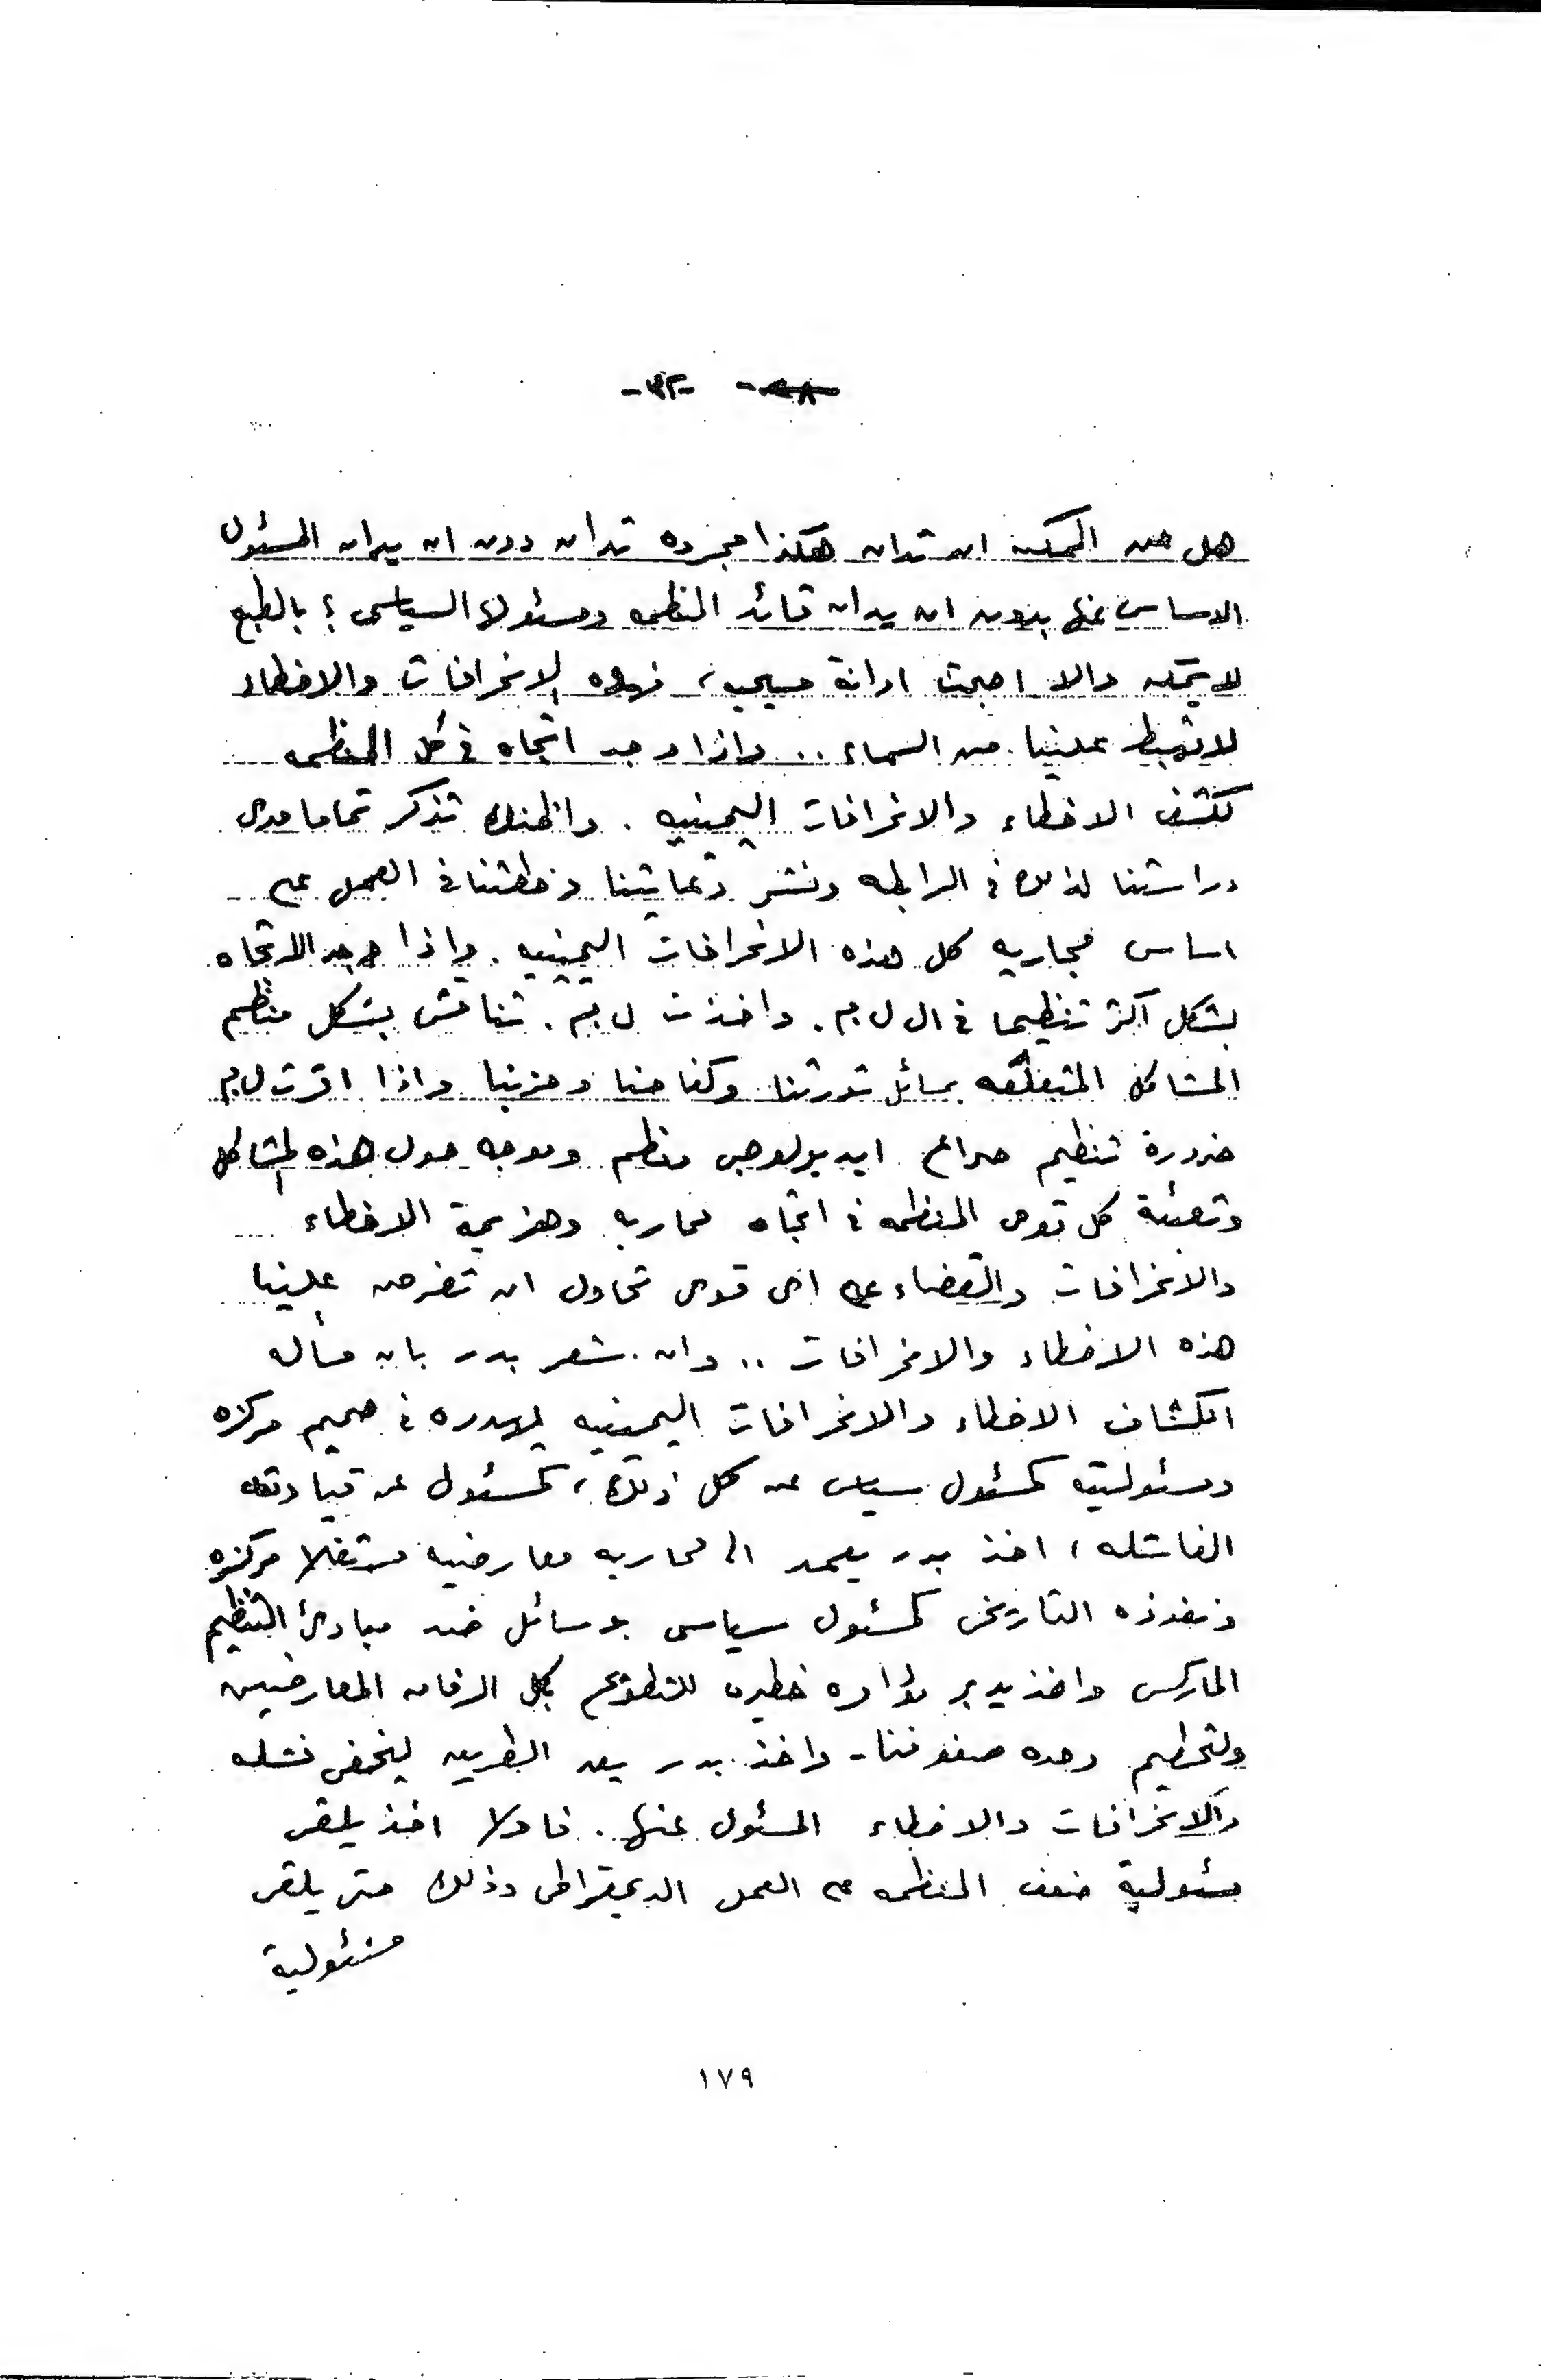 -٣٢-
هل من الممكن ان تدان هكذا مجرده تدان دون ان يدان المسئول
الاساسى عنها بدون ان يدان قائد المنظمه ومسئولها السياسى ؟ بالطبع
لا يمكن والا اصبحت ادانة مسيحيه ، فهذه الانحرافات والاخطاء
لا تهبط علينا من السماء .. واذا وجد اتجاه فى كل المنظمه
لكشف الاخطاء والانحرافات اليمينيه . واظنك تذكر تماما مدى
دراستنا لذلك فى الرابطه ونشر دعايتنا وخطتنا فى العمل على
اساس محاربه كل هذه الانحرافات اليمينيه . واذا وجد الاتجاه
بشكل اكثر تنظيما فى ال ل.م. واخذت ل.م. تناقش بشكل منظم
المشاكل المتعلقه بمسائل ثورتنا وكفاحنا وحزبنا واذا اقرت ل.م
ضرورة تنظيم صراع ايديولوجى منظم وموجه حول هذه المشاكل
وتعبئة كل قوى المنظمه فى اتجاه محاربه وهزيمة الاخطاء
والانحرافات والقضاء على اى قوى تحاول ان تفرض علينا
هذه الاخطاء والانحرافات .. وان شعر بدر بان مسأله
انكشاف الاخطاء والانحرافات اليمينيه يهدده فى صميم مركزه
ومسئوليته كمسئول سياسى عن كل ذلك ، كمسئول عن قيادته
الفاشله ، اخذ بدر يعمد الى محاربه معارضيه مستغلا مركزه
ونفوذه التاريخى كمسئول سياسى بوسائل ضد مبادئ التنظيم
الماركسى واخذ يدبر مؤامره خطيره للتطويح بكل الرفاق المعارضين
ولتحطيم وحده صفوفنا - واخذ بدر يعد الطريق ليخفى فشله
والانحرافات والاخطاء المسئول عنها . فاولا اخذ يلقى
مسئولية ضعف المنظمه على العمل الديمقراطى وذلك حتى يلقى
مسئولية
١٧٩